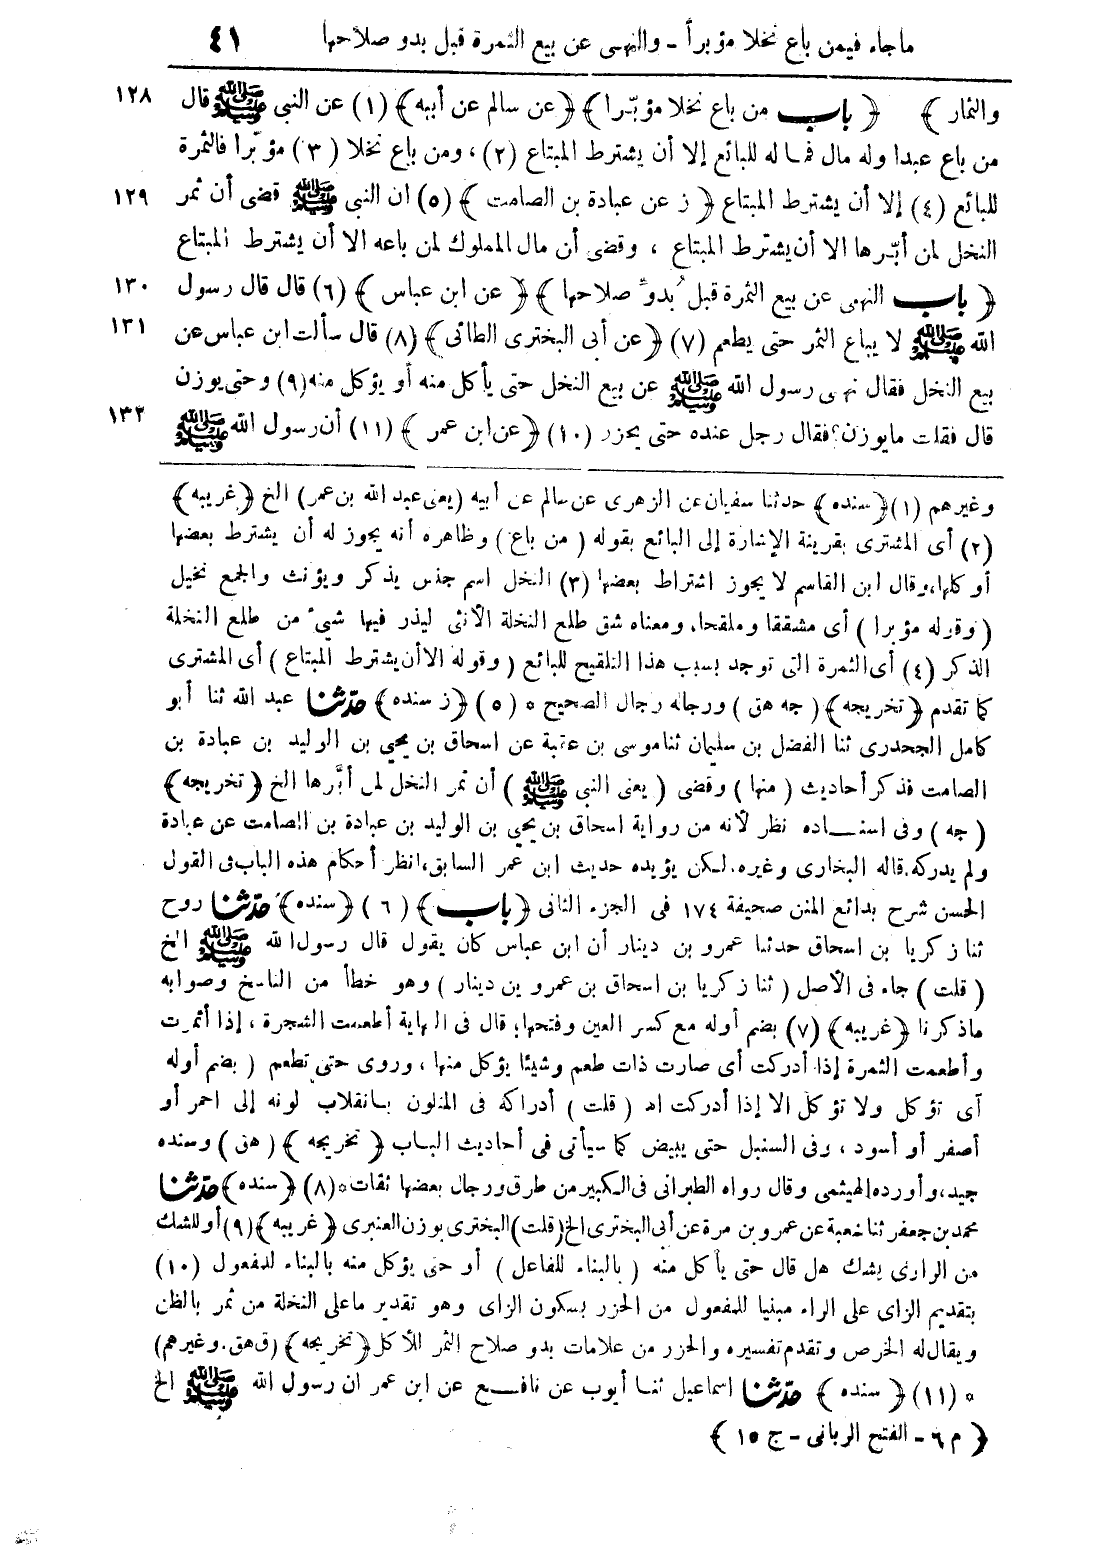 ماجاء فيمن باع نخلا مؤبراً - والنهى عن بيع الثمرة قبل بدو صلاحها ٤١
والثمار ﴾ ﴿ باب من باع نخلا مؤبّرا ﴾ ﴿ عن سالم عن أبيه ﴾ (١) عن النبي ﷺ قال ١٢٨
من باع عبدا وله مال فماله للبائع إلا أن يشترط المبتاع (٢) ، ومن باع نخلا (٣) مؤبّرا فالثمرة
للبائع (٤) إلا أن يشترط المبتاع ﴿ ز عن عبادة بن الصامت ﴾ (٥) ان النبى ﷺ قضى أن ثمر ١٢٩
النخل لمن أبّرها الا أن يشترط المبتاع ، وقضى أن مال المملوك لمن باعه الا أن يشترط المبتاع
﴿ باب النهى عن بيع الثمرة قبل بُدوّ صلاحها ﴾ ﴿ عن ابن عباس ﴾ (٦) قال قال رسول ١٣٠
الله ﷺ لا يباع الثمر حتى يطعم (٧) ﴿ عن أبى البخترى الطائى ﴾ (٨) قال سألت ابن عباس عن ١٣١
بيع النخل فقال نهى رسول الله ﷺ عن بيع النخل حتى يأكل منه أو يؤكل منه (٩) وحتى يوزن
قال فقلت مايوزن؟ فقال رجل عنده حتى يحزر (١٠) ﴿ عن ابن عمر ﴾ (١١) أن رسول الله ﷺ ١٣٢
وغيرهم (١) ﴿ سنده ﴾ حدثنا سفيان عن الزهرى عن سالم عن أبيه (يعنى عبد الله بن عمر) الخ ﴿ غريبه ﴾
(٢) أى المشترى بقرينة الإشارة إلى البائع بقوله (من باع) وظاهره أنه يجوز له أن يشترط بعضها
أو كلها، وقال ابن القاسم لا يجوز اشتراط بعضها (٣) النخل اسم جنس يذكر ويؤنث والجمع نخيل
(وقوله مؤبرا) أى مشققا وملقحا، ومعناه شق طلع النخلة الأنثى ليذر فيها شيء من طلع النخلة
الذكر (٤) أى الثمرة التى توجد بسبب هذا التلقيح للبائع (وقوله الا أن يشترط المبتاع) أى المشترى
كما تقدم ﴿ تخريجه ﴾ (جه هق) ورجاله رجال الصحيح * (٥) ﴿ ز سنده ﴾ حدّثنا عبد الله ثنا أبو
كامل الجحدرى ثنا الفضل بن سليمان ثنا موسى بن عقبة عن اسحاق بن يحيي بن الوليد بن عبادة بن
الصامت فذكر أحاديث (منها) وقضى (يعنى النبى ﷺ) أن ثمر النخل لمن أبَّرها الخ ﴿ تخريجه ﴾
(جه) وفى اسناده نظر لأنه من رواية اسحاق بن يحيي بن الوليد بن عبادة بن الصامت عن عبادة
ولم يدركه. قاله البخارى وغيره. لكن يؤيده حديث ابن عمر السابق، انظر أحكام هذه الباب فى القول
الحسن شرح بدائع المنن صحيفة ١٧٤ فى الجزء الثانى ﴿ باب ﴾ (٦) ﴿ سنده ﴾ حدّثنا روح
ثنا زكريا بن اسحاق حدثنا عمرو بن دينار أن ابن عباس كان يقول قال رسول الله ﷺ الخ
(قلت) جاء فى الأصل (ثنا زكريا بن اسحاق بن عمرو بن دينار) وهو خطأ من الناسخ وصوابه
ماذكرنا ﴿ غريبه ﴾ (٧) بضم أوله مع كسر العين وفتحها؛ قال فى النهاية أطعمت الشجرة ، إذا أثمرت
وأطعمت الثمرة إذا أدركت أى صارت ذات طعم وشيئا يؤكل منها ، وروى حتى تطعم (بضم أوله
أى تؤكل ولا تؤكل الا إذا أدركت اه (قلت) أدراكه فى المتلون بانقلاب لونه إلى احمر أو
أصفر أو أسود ، وفى السنبل حتى يبيض كما سيأتى فى أحاديث الباب ﴿ تخريجه ﴾ (هق) وسنده
جيد، وأورده الهيثمى وقال رواه الطبرانى فى الكبير من طرق ورجال بعضها ثقات * (٨) ﴿ سنده ﴾ حدّثنا
محمد بن جعفر ثنا شعبة عن عمرو بن مرة عن أبى البخترى الخ (قلت) البخترى بوزن العنبرى ﴿ غريبه ﴾ (٩) أو للشك
من الراوى يشك هل قال حتى يأكل منه (بالبناء للفاعل) أو حتى يؤكل منه بالبناء للمفعول (١٠)
بتقديم الزاى على الراء مبنيا للمفعول من الحزر بسكون الزاى وهو تقدير ماعلى النخلة من ثمر بالظن
ويقال له الخرص وتقدم تفسيره والحزر من علامات بدو صلاح الثمر للأكل ﴿ تخريجه ﴾ (ق هق. وغيرهم)
* (١١) ﴿ سنده ﴾ حدّثنا اسماعيل ثنا أيوب عن نافع عن ابن عمر ان رسول الله ﷺ الخ
﴿ م ٦ - الفتح الربانى - ج ١٥ ﴾